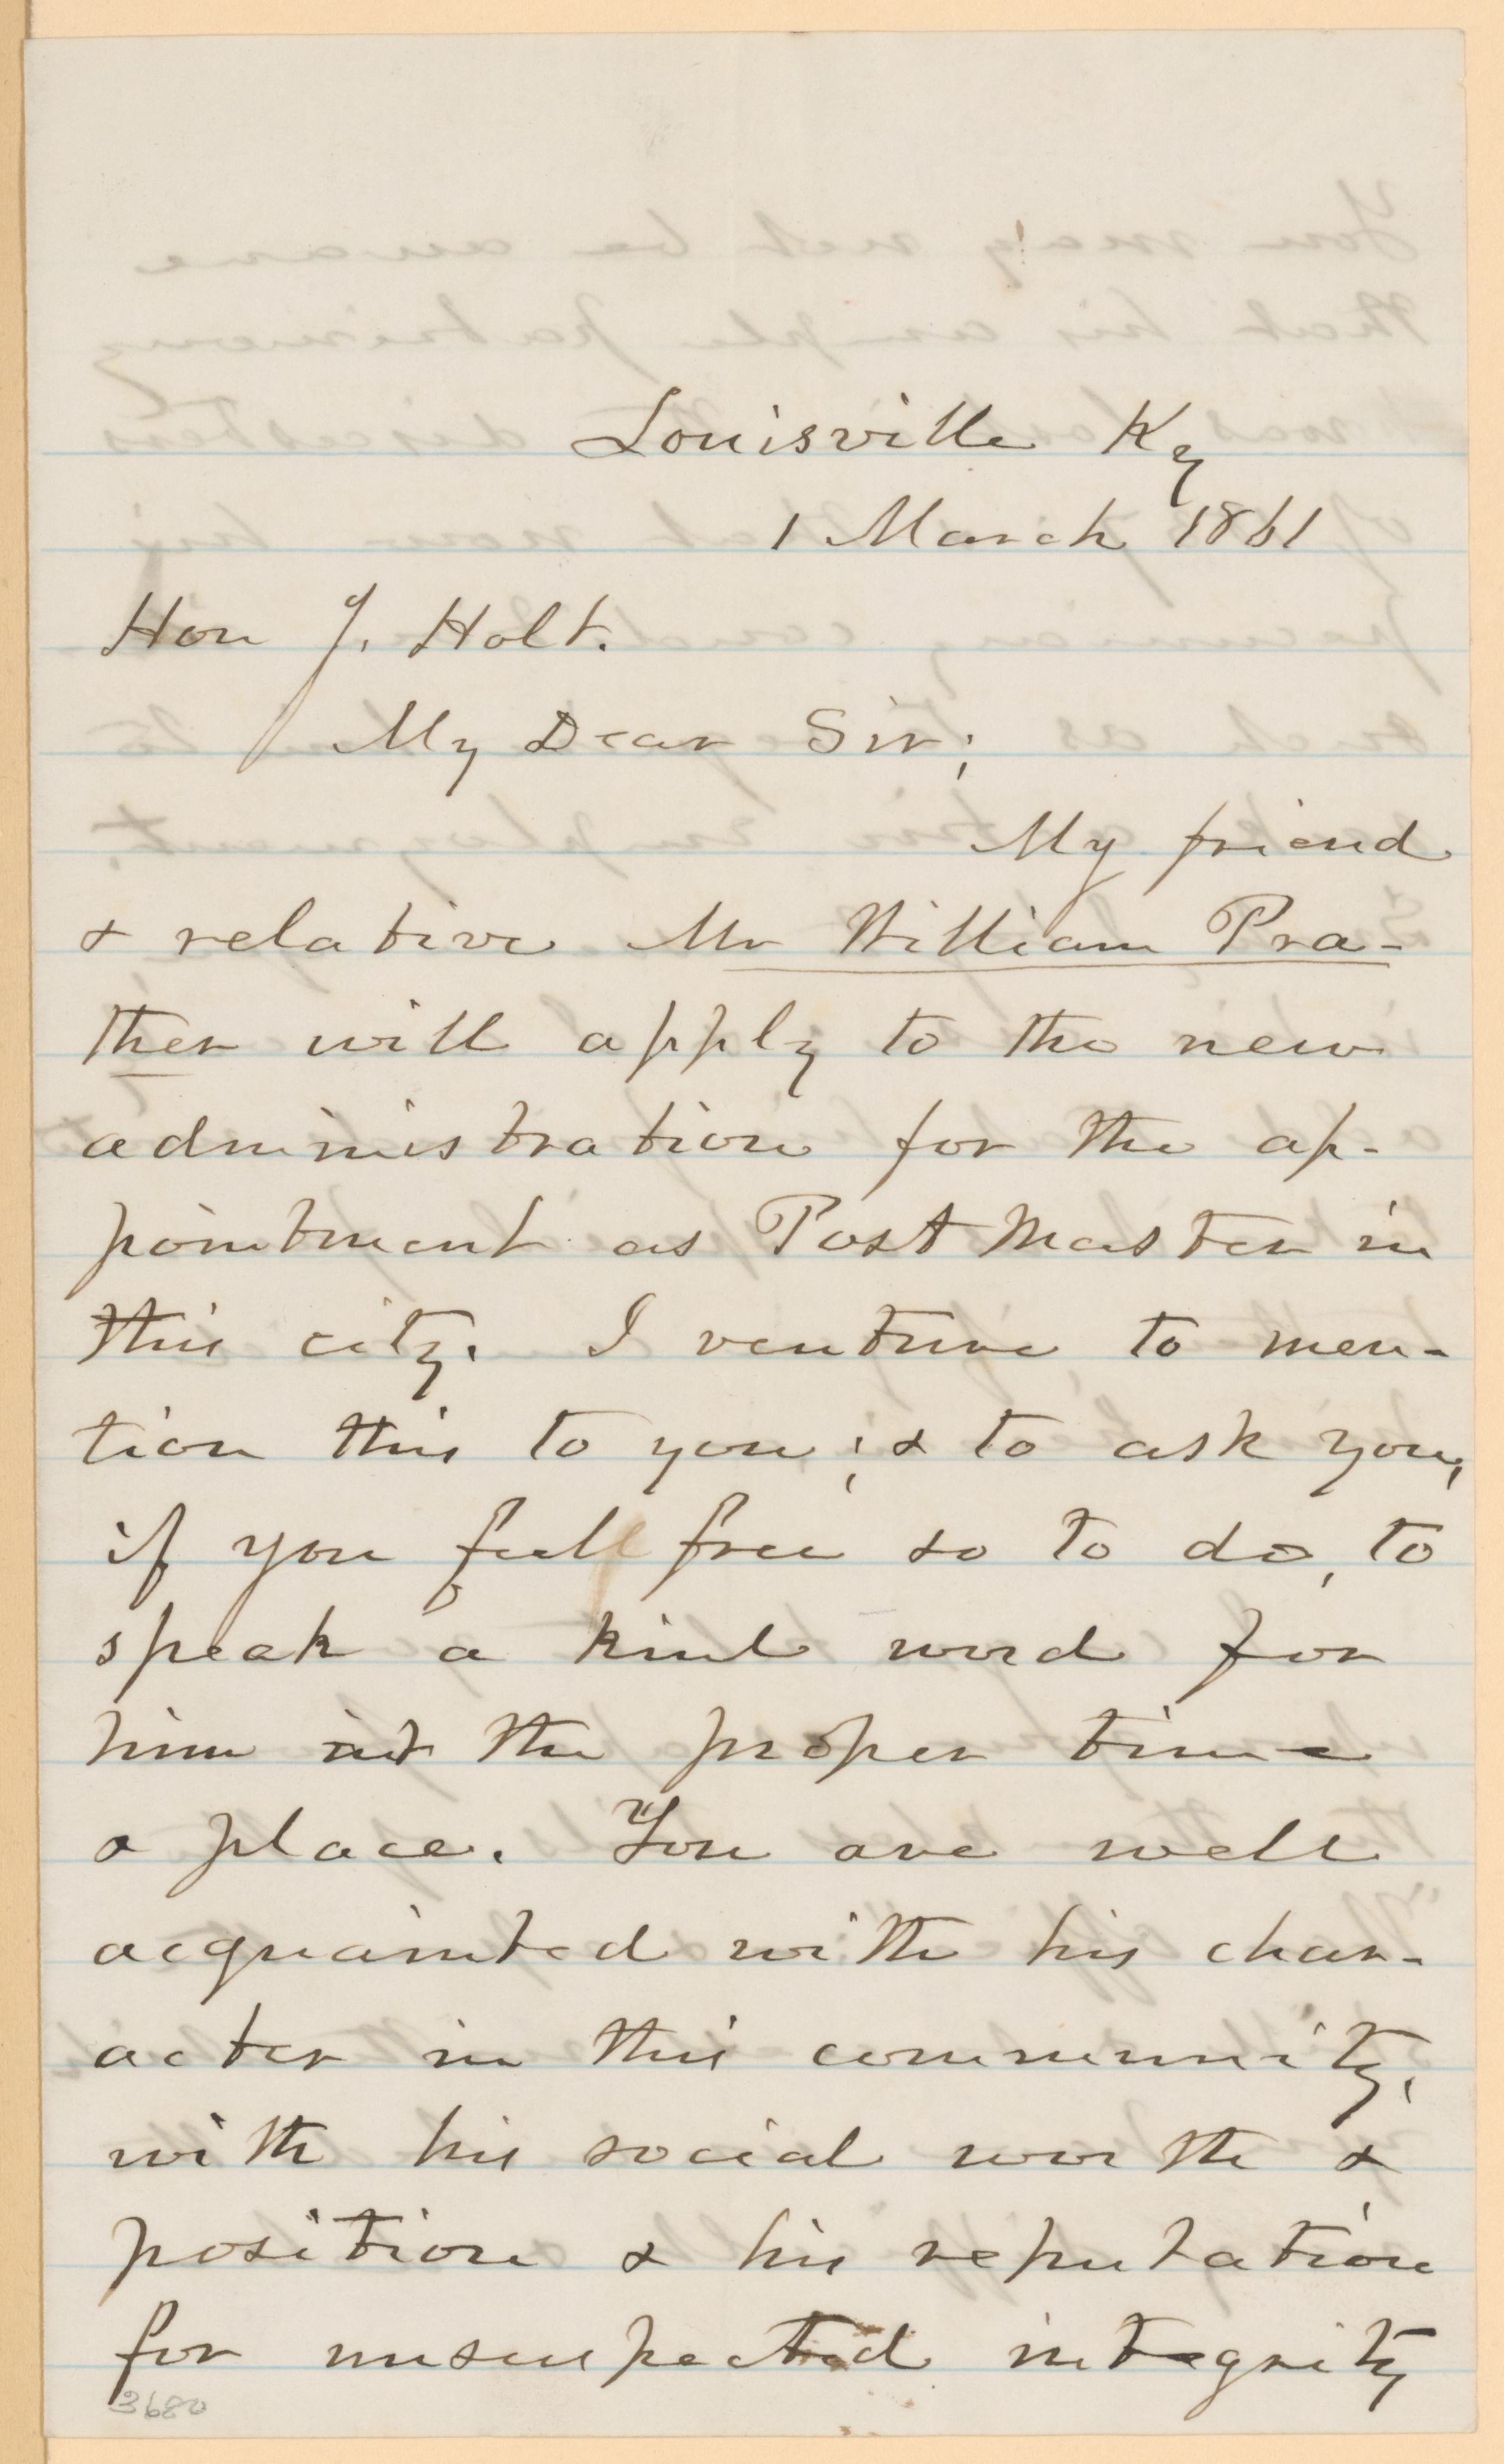 Louisville Ky
1 March 1861
Hon J. Holt.
My Dear Sir;
My friend
& relative Mr William Pra-
ther will apply to the new
administration for the ap-
pointment as Post Master in
this city. I venture to men-
tion this to you; & to ask you,
if you feel free so to do, to
speak a kind word for
him at the proper time
& place. You are well
acquainted with his char-
acter in this community,
with his social worth &
position & his reputation
for unsuspected integrity
3680